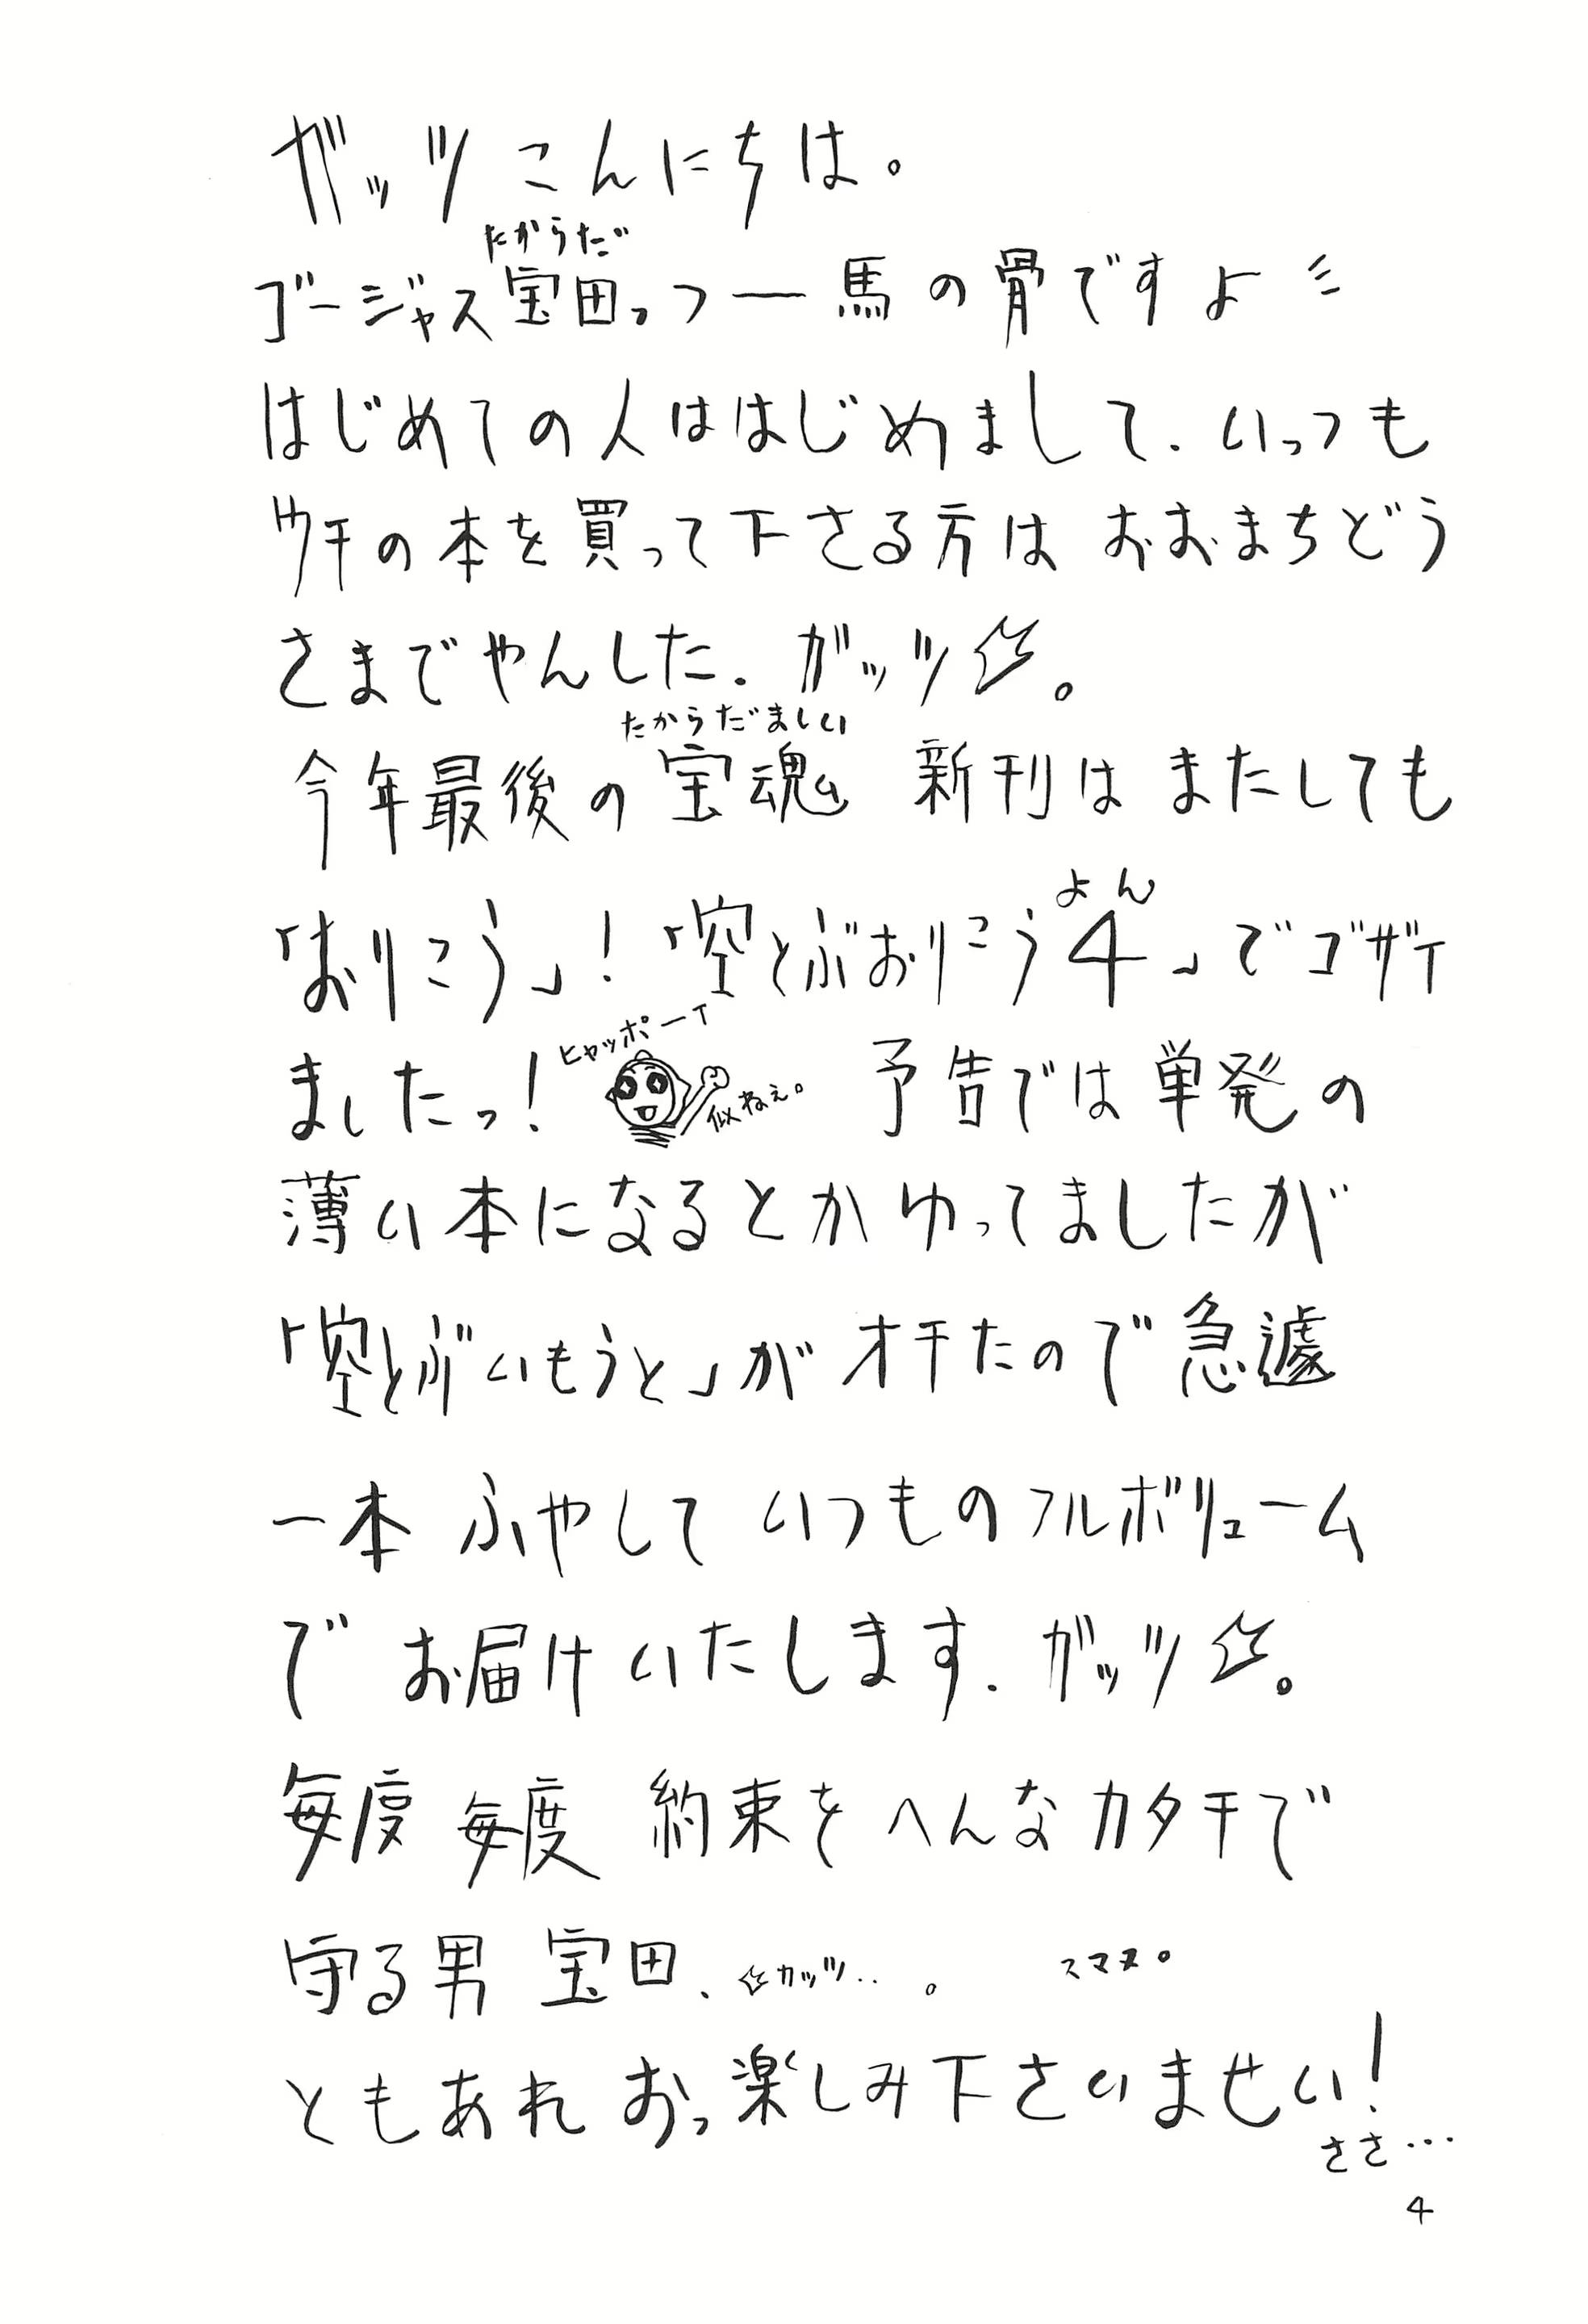 ガッツこんにちは。
たからだ
ゴージャス宝田っつー馬の骨ですよ
はじめての人ははじめまして．いっつも
ウチの本を買って下さる方は おおまちどう
さまでやんした．ガッツ。
たからだましい
今年最後の宝魂 新刊は またしても
よん
「おりこう」！「空とぶおりこう4」でゴザイ
ヒャッポーイ
ましたっ！ 予告では単発の
似ねぇ。
薄い本になるとかゆってましたが
「空とぶいもうと」がオチたので急遽
一本 ふやして いつものフルボリューム
で お届けいたします．ガッツ。
毎度 毎度 約束をへんなカタチで
守る男 宝田．ガッツ‥。 スマヌ。
ともあれ おっ楽しみ下さいませい！
ささ…
4